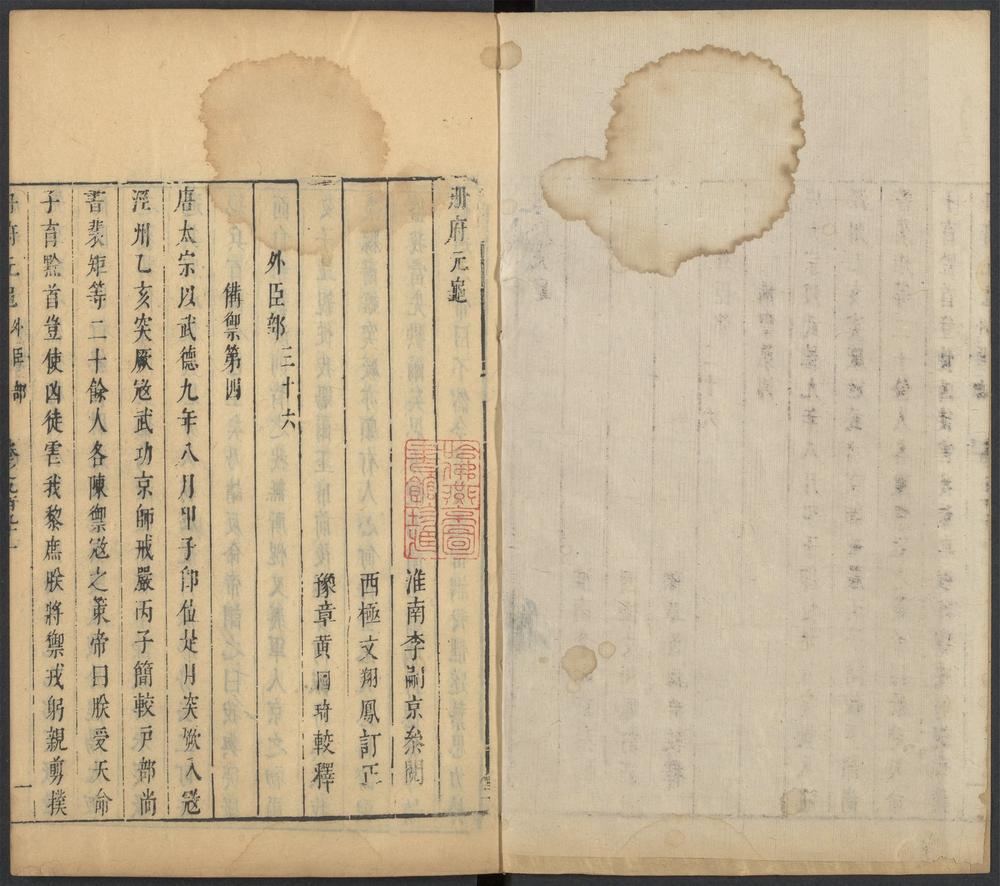 冊府元龜
淮南李嗣京叅閱
西極文翔鳳訂正
豫章黃國琦較釋
外臣部三十六
備禦第四
唐太宗以武德九年八月甲子卽位是月突厥入寇
涇州乙亥突厥寇武功京師戒嚴丙子簡較戸部尚
書裴矩等二十餘人各陳禦寇之策帝曰朕受天命
子育黔首豈使凶徒害我黎庶朕將禦戎躬親剪撲
外臣部
一
哈佛燕京圖書館珍藏